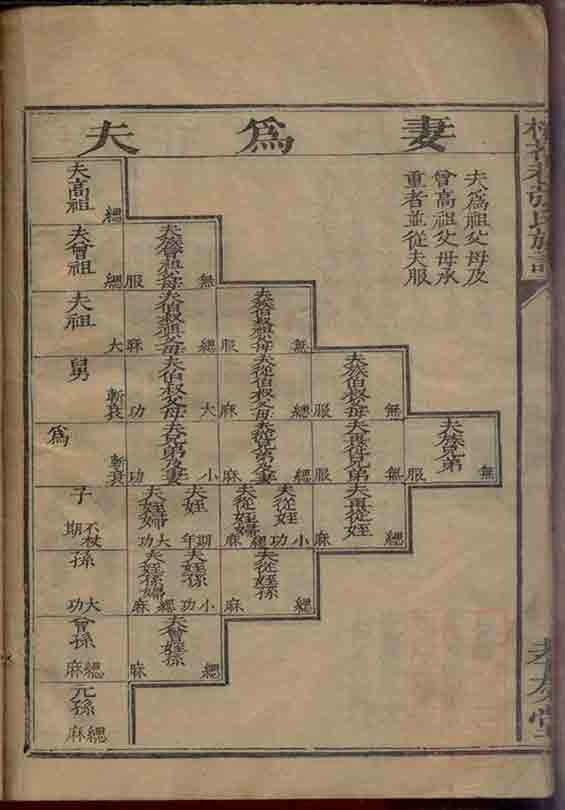 張氏族譜
孝友堂
妻為夫
夫為祖父母及
曾高祖父母承
重者並從夫服
夫高祖
緦
夫曾祖
緦
夫族曾祖父母
無服
夫祖
大
夫伯叔祖父母
緦麻
夫族伯叔祖父母
無服
舅
斬衰
夫伯叔父母
大功
夫從伯叔父母
緦麻
夫族伯叔父母
無服
為
斬衰
夫兄弟及妻
小功
夫從兄弟及妻
緦麻
夫再從兄弟
無服
夫族兄弟
無服
子
不杖期
夫姪
期年
夫姪婦
大功
夫從姪
小功
夫從姪婦
緦麻
夫再從姪
緦麻
孫
大功
夫姪孫
小功
夫姪孫婦
緦麻
夫從姪孫
緦麻
曾孫
緦麻
夫曾姪孫
緦麻
元孫
緦麻